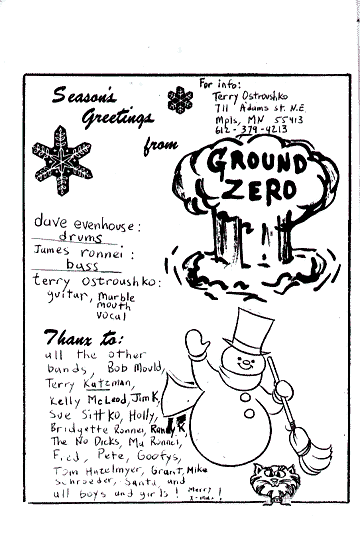 For info:
Terry Ostroushko
711 Adams St. N.E.
Mpls, MN 55413
612-379-4213
Season's
Greetings
from
GROUND
ZERO
dave evenhouse:
drums
James ronnei:
bass
terry ostroushko:
guitar, marble
mouth
vocal
Thanx to:
all the other
bands, Bob Mould,
Terry Katzman,
Kelly McLeod, Jim K,
Sue Sittko, Holly,
Bridgette Ronnei, Randy R,
The No Dicks, Ma Ronnei,
Fred, Pete, Goofys,
Tom Hazelmyer, Grant, Mike
Schroeder, Santa, and
all boys and girls! Merry
X-mas!